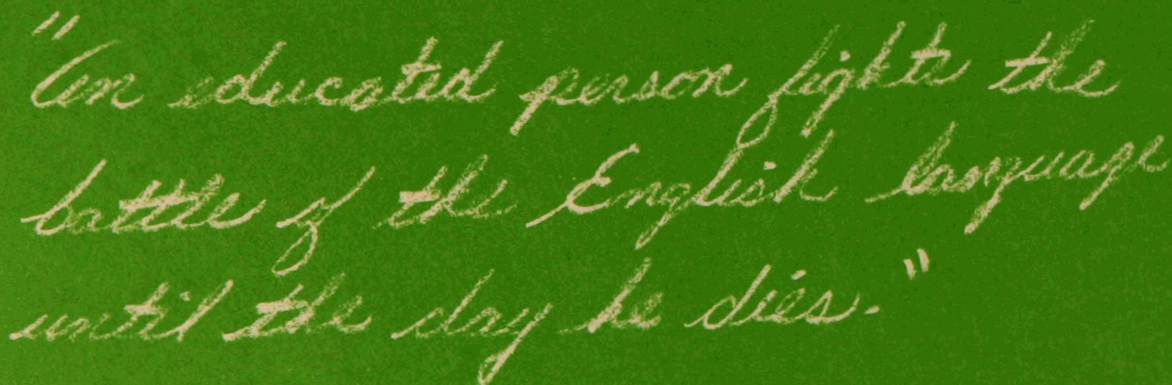 "An educated person fights the
battle of the English language
until the day he dies."